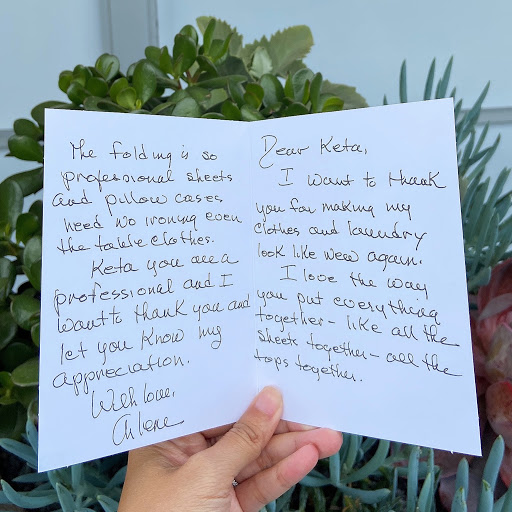 Dear Keta,
I want to thank
you for making my
clothes and laundry
look like new again.
I love the way
you put everything
together - like all the
sheets together - all the
tops together.
The folding is so
professional sheets
and pillow cases
need no ironing even
the table clothes.
Keta you are a
professional and I
want to thank you and
let you know my
appreciation.
With love,
Arlene